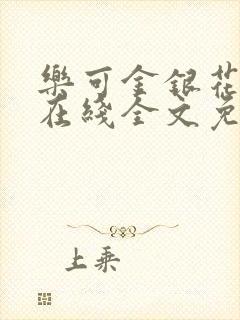 樂可金銀花
在綫全文免
上乘